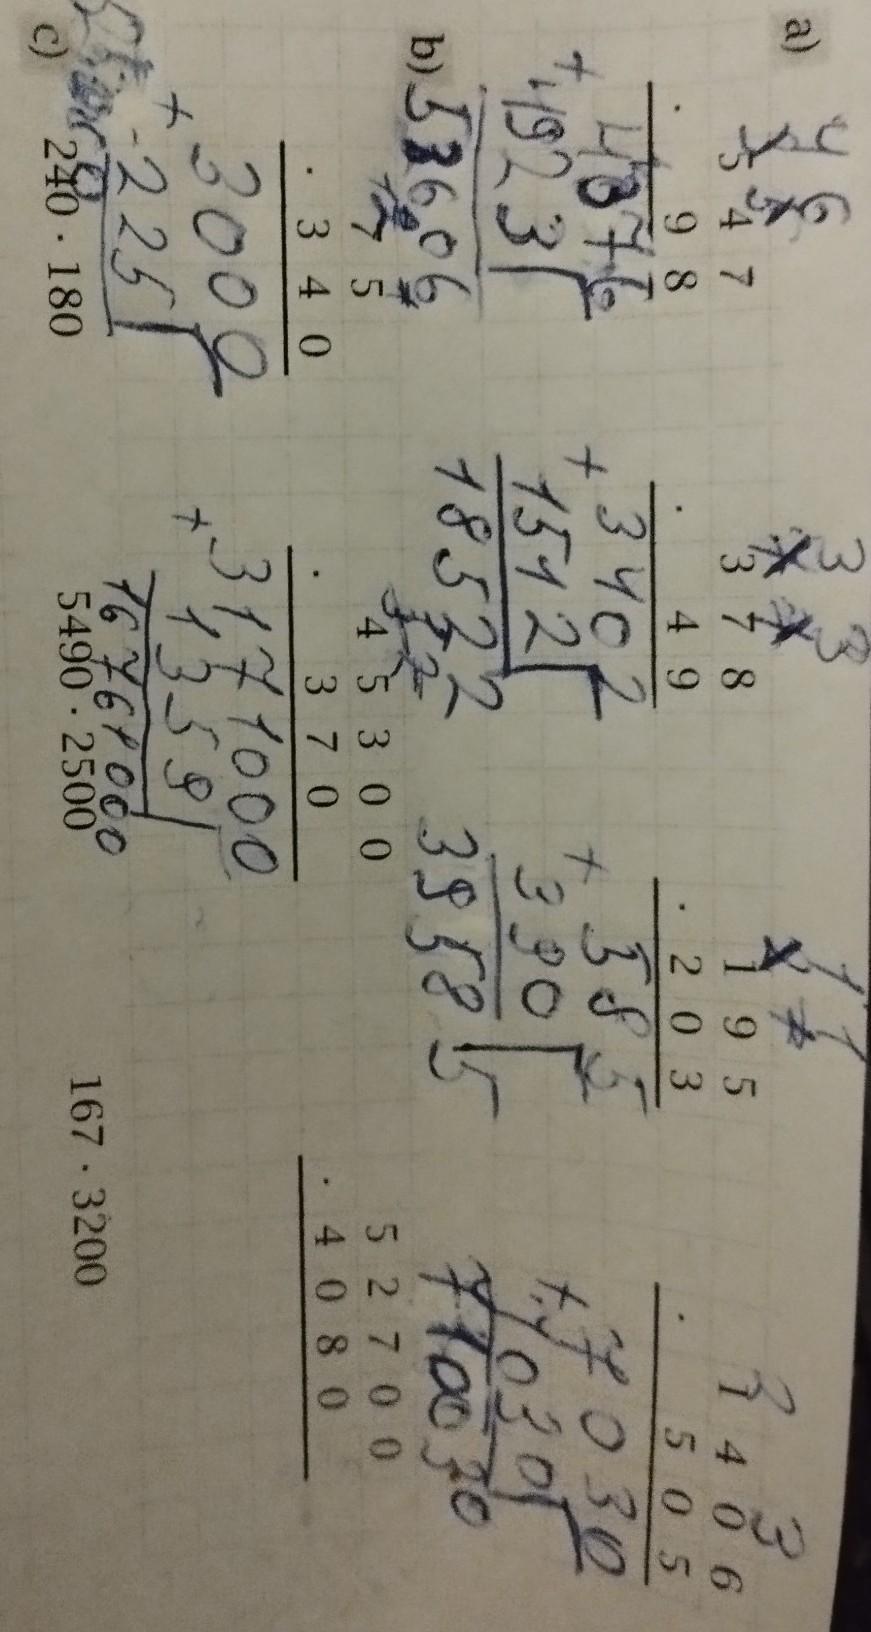 a)
4 6
5 4 7
· 9 8
4376
+ 4923
53606
3 3
3 7 8
· 4 9
3402
+ 1512
18522
1 1
1 9 5
· 2 0 3
585
+ 390
39585
2 3
1 4 0 6
· 5 0 5
7030
+ 7030
710030
b)
7 5
· 3 4 0
3000
+ 225
4 5 3 0 0
· 3 7 0
3171000
+ 1359
16761000
5 2 7 0 0
· 4 0 8 0
c)
240 · 180
5490 · 2500
167 · 3200